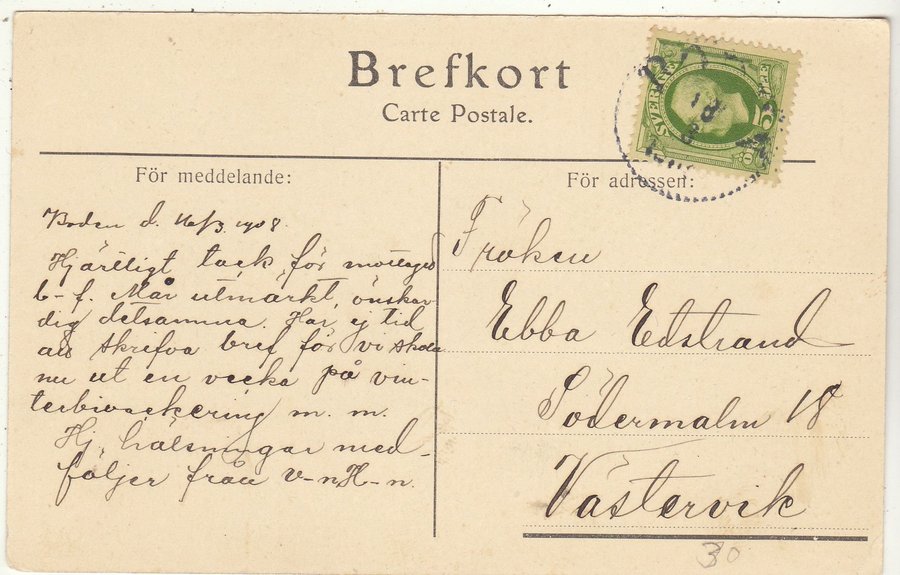 Brefkort
Carte Postale.
För meddelande:
Boden d. 16/3 1908.
Hjärtligt tack för mottaget
b-f. Mår utmärkt, önskar
dig detsamma. Har ej tid
att skrefva bref för vi skola
nu ut en vecka på vin-
terbivackering m. m.
Hj. hälsningar med-
följer från V-n H-n.
För adressen:
Fröken
Ebba Edstrand
Södermalm 18
Västervik
SVERIGE
5
30